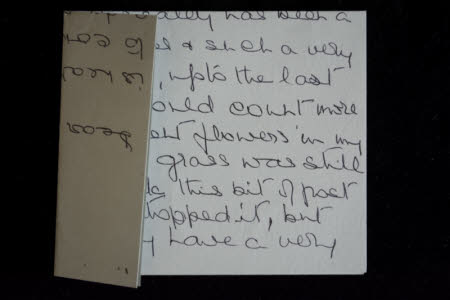 has been a
& such a very
, upto the last
ould count more
flowers in my
grass was still
this bit of post
hopped it, but
y have a very